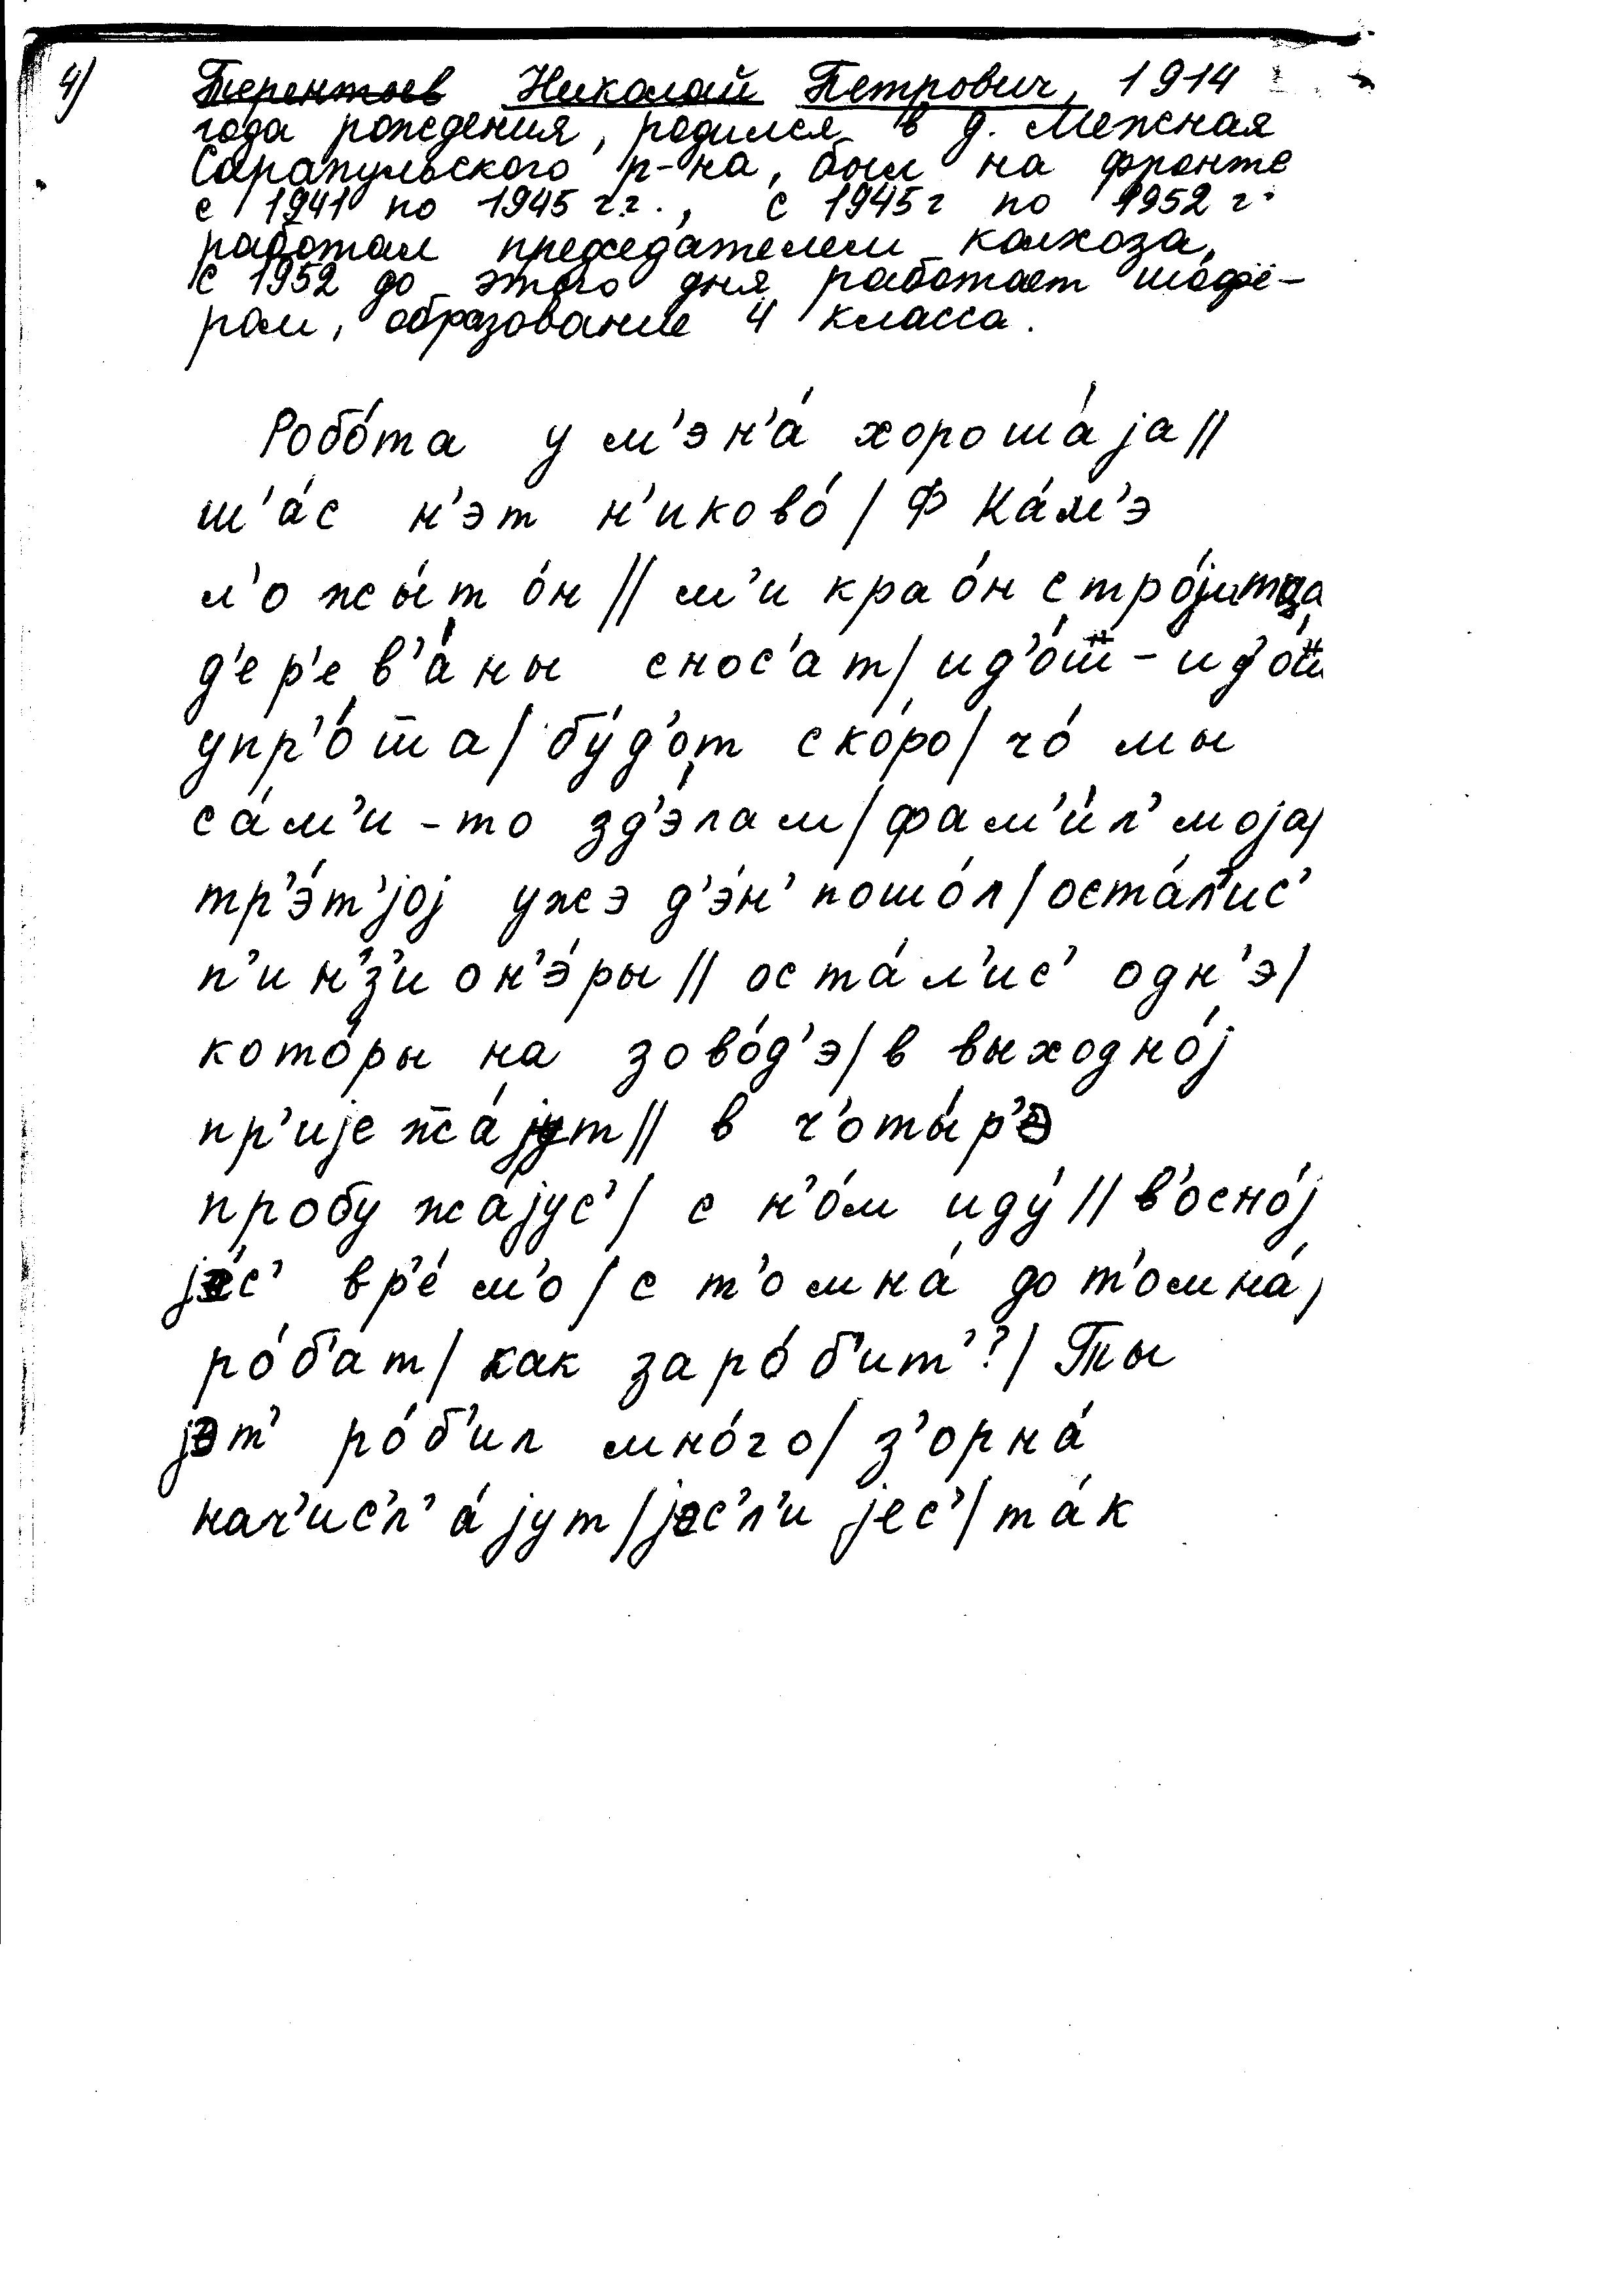 4) Терентьев Николай Петрович, 1914
года рождения, родился в д. Межная
Сарапульского р-на, был на фронте
с 1941 по 1945 г.г., с 1945 г по 1952 г.
работал председателем колхоза,
с 1952 до этого дня работает шофё-
ром, образование 4 класса.
Робо́та у м'эн'а́ хороша́jа //
ш'а́с н'эт н'иково́ / Ф Ка́м'э
л'о жы́т о́н // м'и кра о́н стро́jитца
д'е р'е в'а́ ны снос'ат / ид'о́т - ид'о́т
упр'о́ та / бу́д'от ско́ро / чо́ мы
са́м'и - то зд'э́лам / фам'и́л' моjа /
тр'э́т'jоj ужэ д'э́н' пошо́л / оста́л'ис'
п'и н'з'и он'э́ры // оста́л'ис' одн'э /
кото́ры на зово́д'э / в выходно́j
пр'иjе жа́jут // в ч'оты́р'э
пробу жа́jус' / с н'о́м иду́ // в'осно́j
jэ́с' вр'е́ м'о / с т'о мна́ до т'омна́ /
ро́б'ат / как заро́ б'ит'? / Ты
jэт' ро́б'ил мно́го / з'орна́
нач'ис'л'а́jут / jэс'л'и jес' / та́к